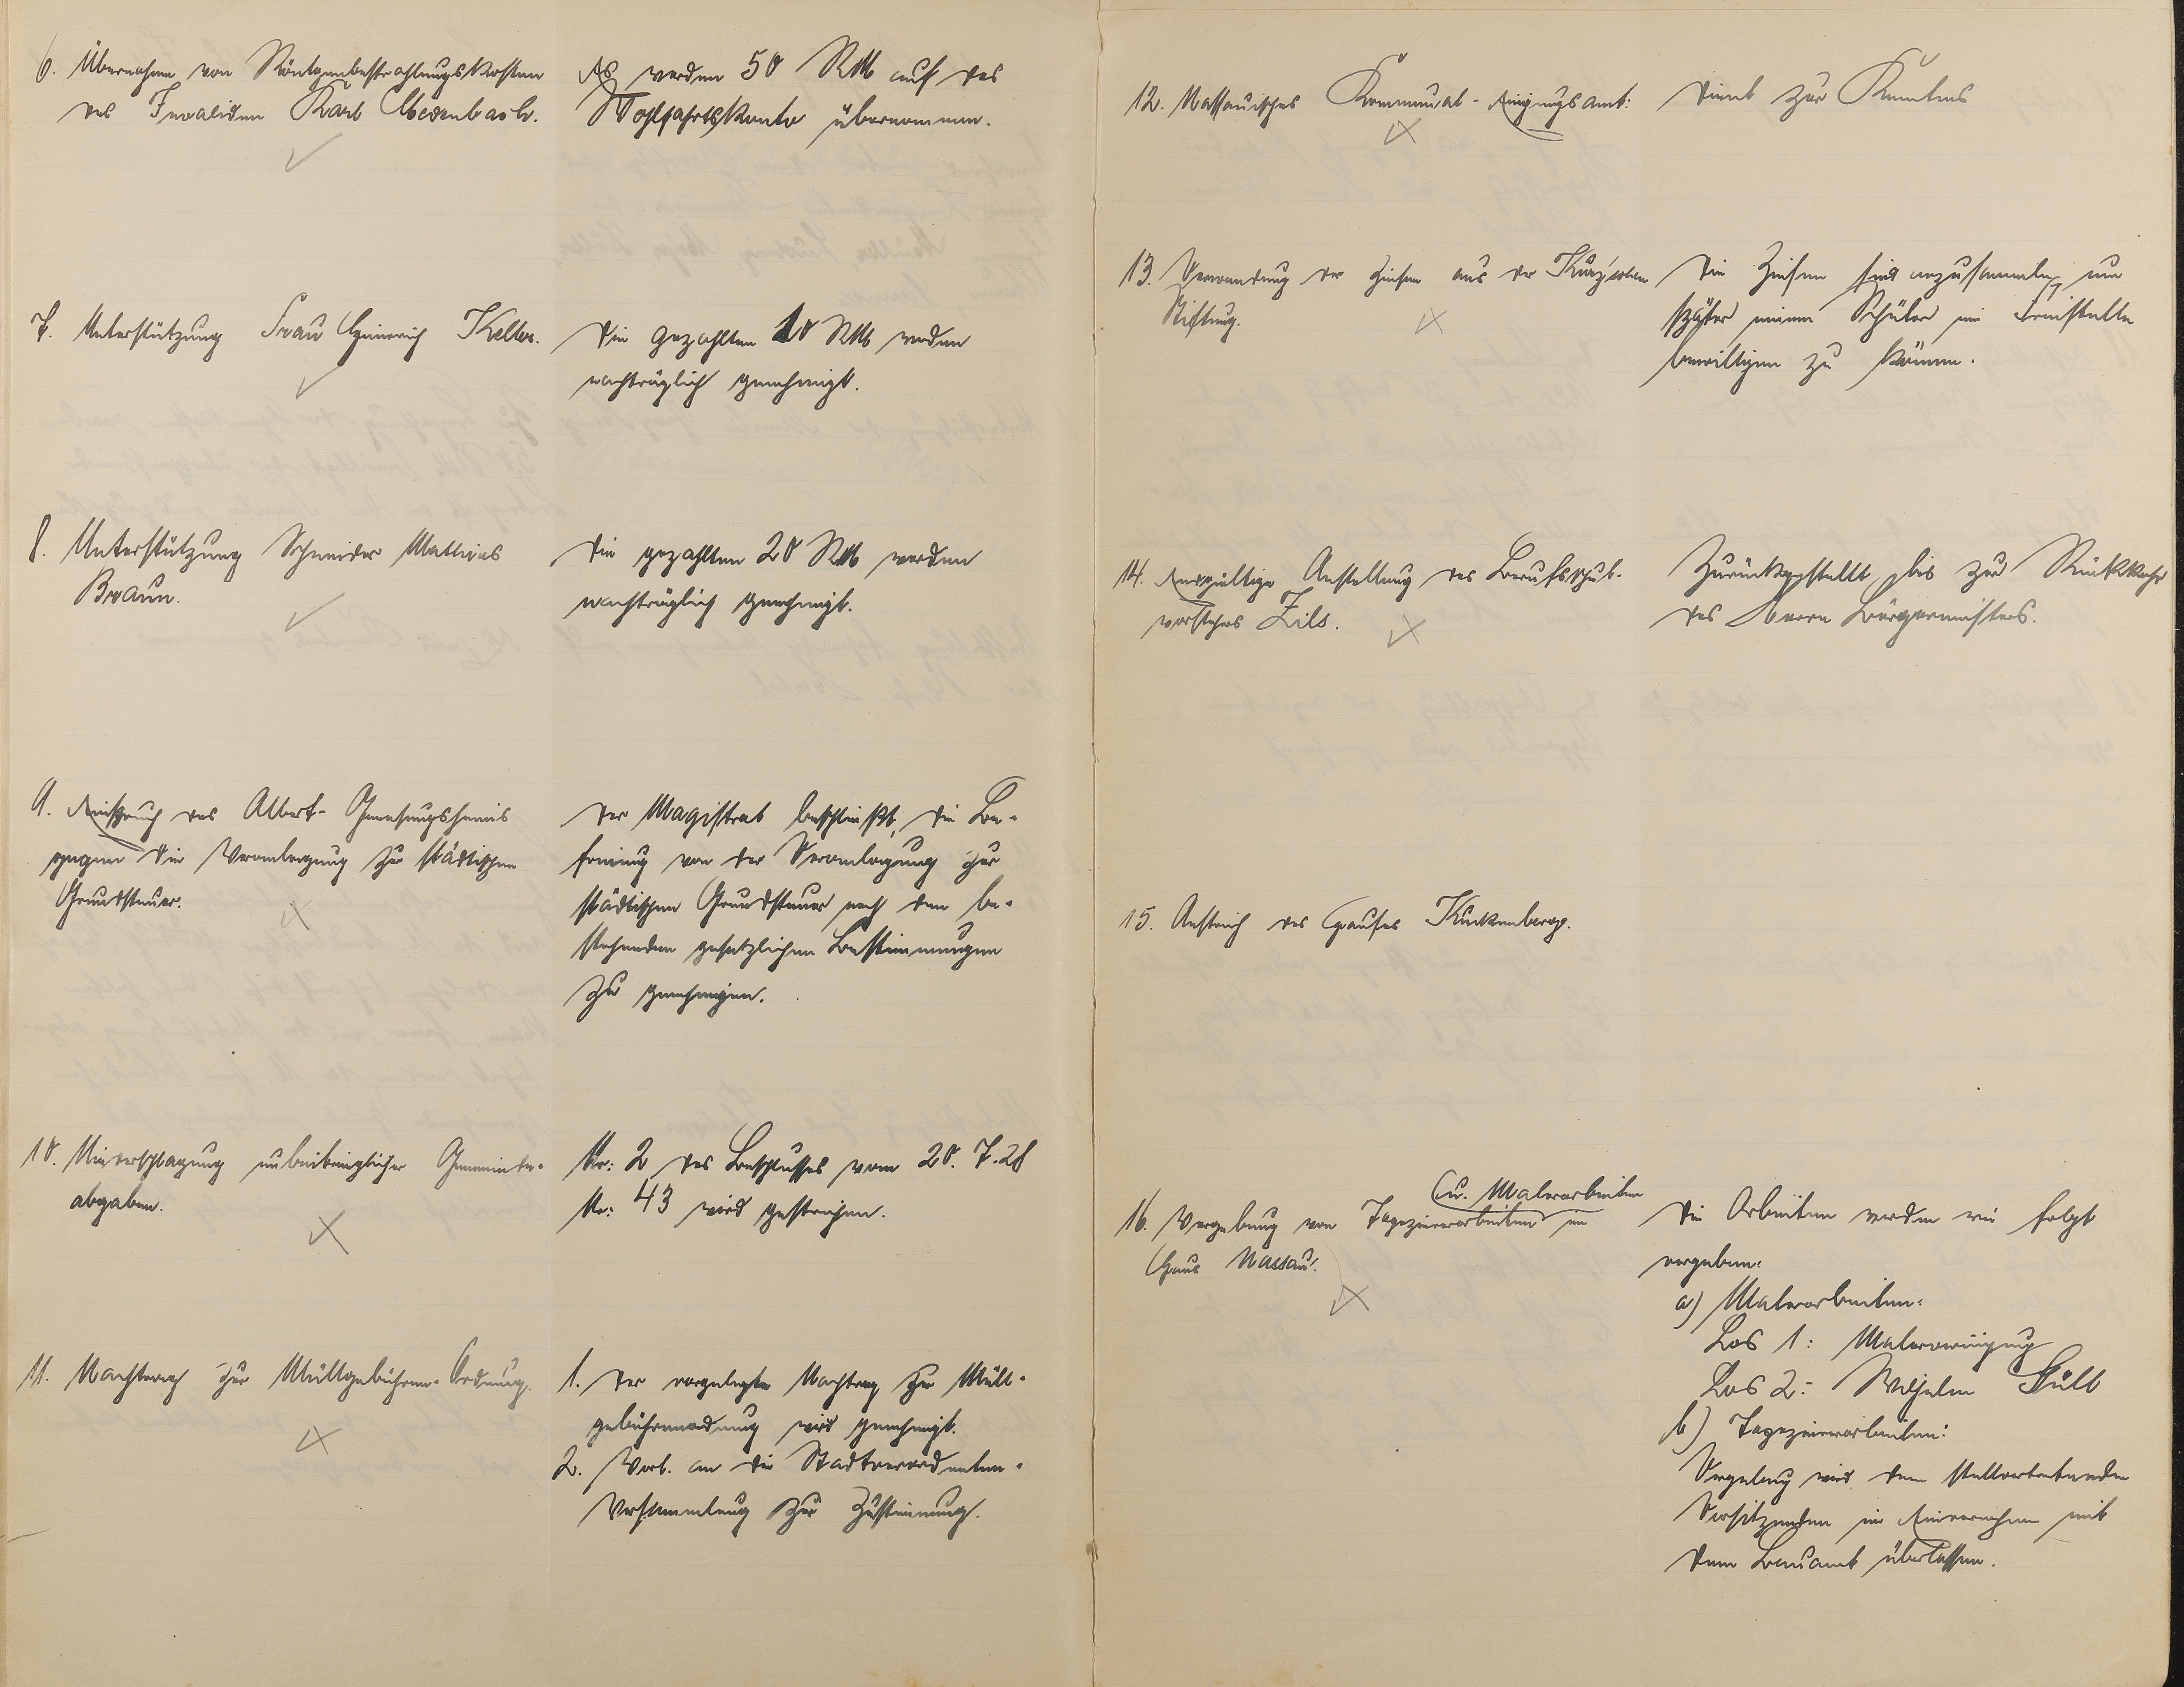 6. Übernahme von Röntgenbestrahlungskosten
des Invaliden Karl Medenbach.
Es werden 50 RM auf das
Wohlfahrtskonto übernommen.
7. Unterstützung Frau Heinrich Keller.
Die gezahlten 10 RM werden
nachträglich genehmigt.
8. Unterstützung Schneider Mathias
Braun.
Die gezahlten 20 RM werden
nachträglich genehmigt.
9. Einspruch des Albert-Genesungsheims
gegen die Veranlagung zur städtischen
Grundsteuer.
Der Magistrat beschließt, die Be-
freiung von der Veranlagung zur
städtischen Grundsteuer nach den be-
stehenden gesetzlichen Bestimmungen
zu genehmigen.
10. Niederschlagung unbeibringlicher Gemeinde-
abgaben.
Nr: 2 des Beschlusses vom 20. 7. 28
Nr: 43 wird gestrichen.
11. Nachtrag zur Müllgebühren-Ordnung.
1. Der vorgelegte Nachtrag zur Müll-
gebührenordnung wird genehmigt.
2. Vorl. an die Stadtverordneten-
versammlung zur Zustimmung.
12. Nassauisches Kommunal-Einigungsamt:
Dient zur Kenntnis
13. Verwendung der Zinsen aus der Kurz'schen
Stiftung.
Die Zinsen sind anzusammeln, um
später einem Schüler eine Freistelle
bewilligen zu können.
14. Endgültige Anstellung des Berufsschul-
vorstehers Zils.
Zurückgestellt bis zur Rückkehr
des Herrn Bürgermeisters.
15. Anstrich des Hauses Kuckenberg.
16. Vergebung von Tapeziererarbeiten u. Malerarbeiten im
Haus Nassau.
Die Arbeiten werden wie folgt
vergeben:
a) Malerarbeiten:
Los 1: Malervereinigung
Los 2: Wilhelm Gült
b) Tapeziererarbeiten:
Vergebung wird dem stellvertretenden
Vorsitzenden im Einvernehmen mit
dem Bauamt überlassen.